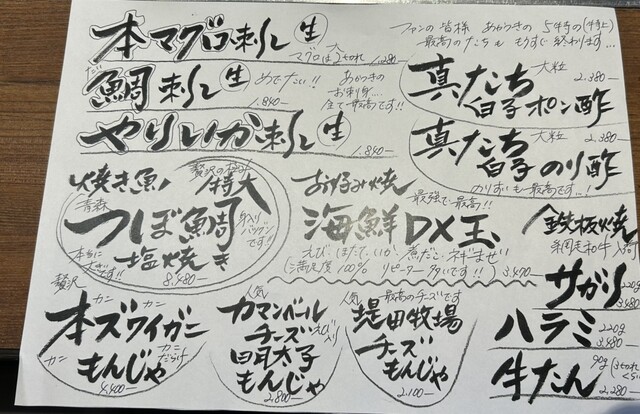 本マグロ刺し 生
マグロは大2切れ 1,280-
鯛刺し 生
めでたい!! あかつきの
お刺身…
全て最高です!!
1,840-
やりいか刺し 生
1,840-
ファンの皆様 あかつきの 5本特の(特上)
最高のたちも もうすぐ終わります…
真たち 大粒
2,380-
白子ポン酢
真たち 大粒
2,380-
白子のり酢
のりずいも最高です…!
焼き魚 贅沢の極み 特大
青森 つぼ鯛
身入りバツグンです!!
本当に大きいです!!
塩焼き
8,480-
お好み焼 最強で最高!!
海鮮DX玉
えび、ほたて、いか 煮だこ・ネギまぜ
(満足度100% リピーター多いです!!) 3,490-
鉄板焼
網走和牛入荷
サガリ
220g
3,480-
ハラミ 220g
3,480-
牛たん 90g
2,280-
贅沢 カニ カニ
本ズワイガニ
カニ もんじゃ カニだらけ
4,400-
人気 カマンベール
チーズ えび入り
明太子
もんじゃ
2,800-
人気 最高のチーズです
堤田牧場
チーズ
もんじゃ
2,100-